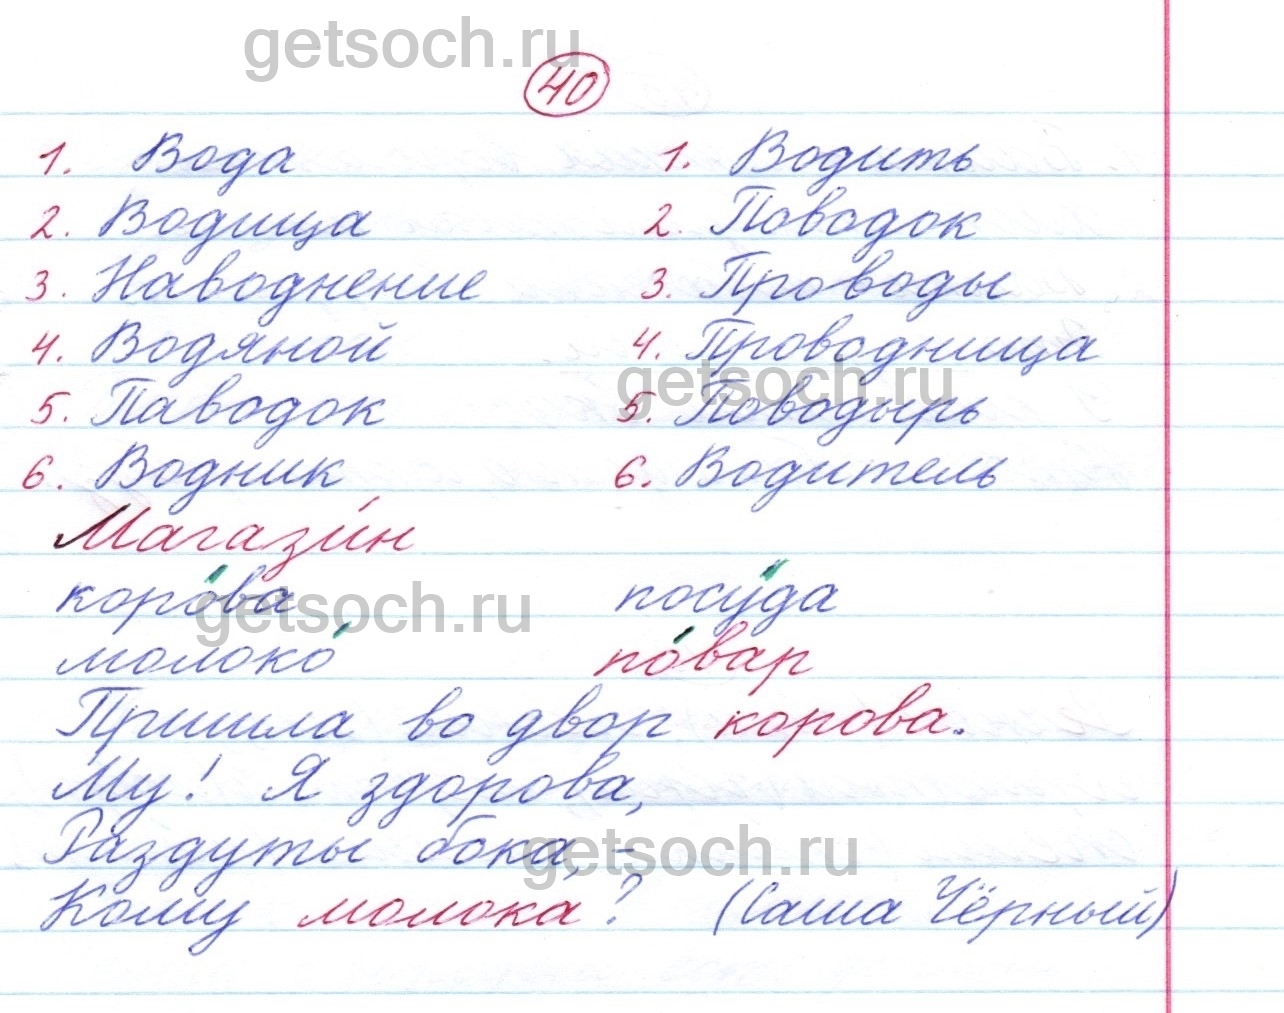 getsoch.ru
40
1. Вода 1. Водить
2. Водица 2. Поводок
3. Наводнение 3. Проводы
4. Водяной 4. Проводница
getsoch.ru
5. Паводок 5. Поводырь
6. Водник 6. Водитель
Магази́н
коро́ва посу́да
getsoch.ru
молоко́ по́вар
Пришла во двор корова.
Му! Я здорова,
Раздуты бока, –
getsoch.ru
Кому молока? (Саша Чёрный)